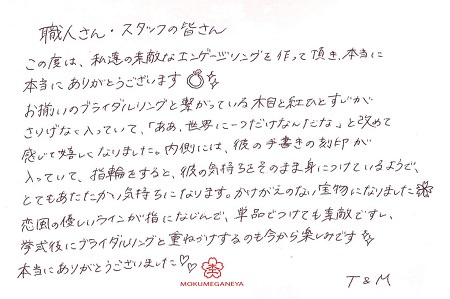 職人さん・スタッフの皆さん
この度は、私達の素敵なエンゲージリングを作って頂き、本当に
本当にありがとうございます
お揃いのブライダルリングと繋がっている木目と紅ひとすじが
さりげなく入っていて、「ああ、世界に一つだけなんだな」と改めて
感じて嬉しくなりました。内側には、彼の手書きの刻印が
入っていて、指輪をすると、彼の気持ちをそのまま身につけているようで、
とてもあたたかい気持ちになります。かけがえのない宝物になりました
恋風の優しいラインが指になじんで、単品でつけても素敵ですし、
挙式後にブライダルリングと重ねづけするのも今から楽しみです
本当にありがとうございました♡♡
MOKUMEGANEYA
T&M